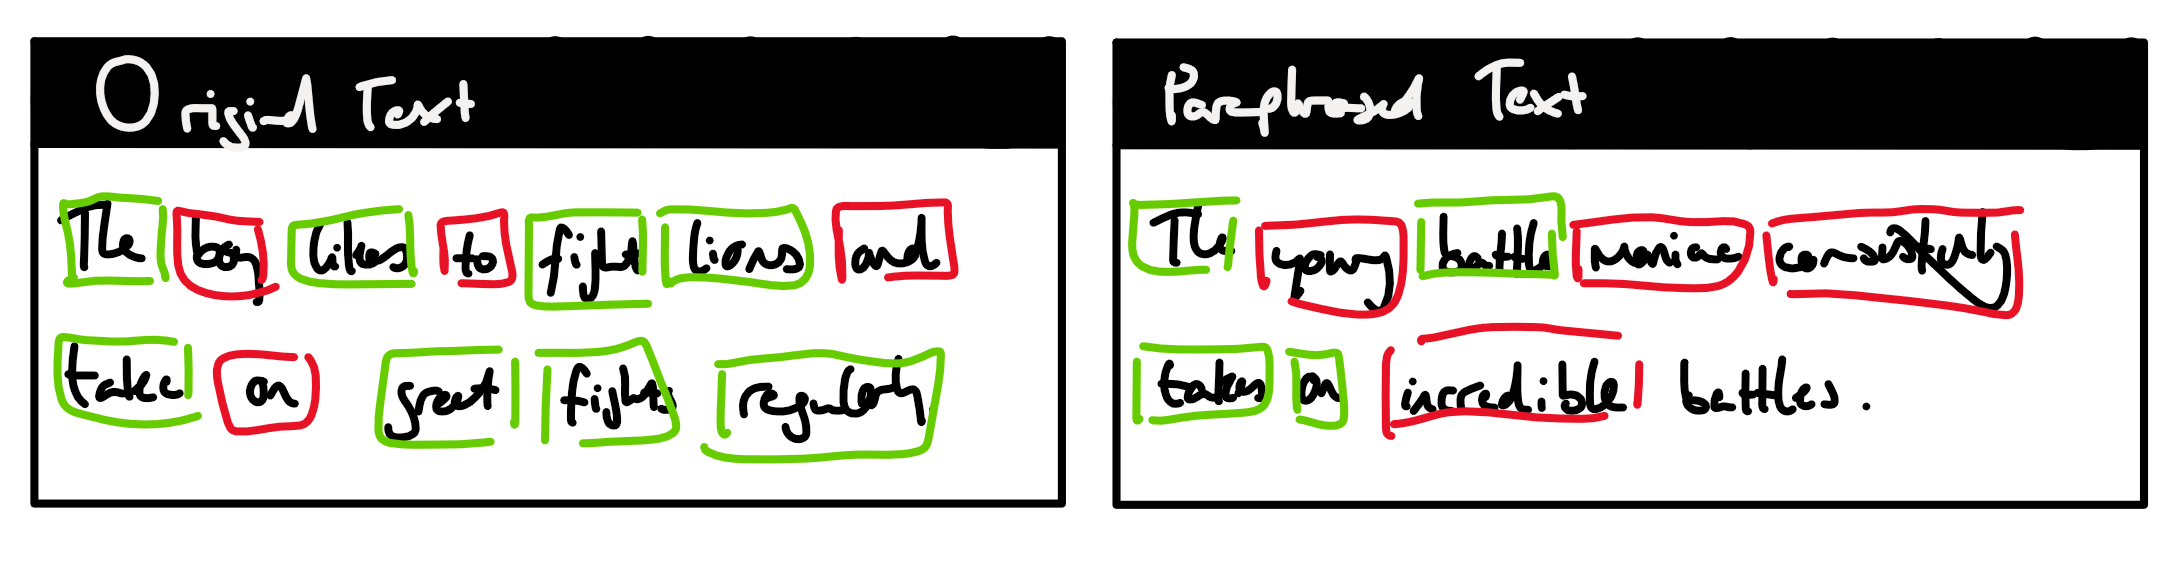 Original Text
The boy likes to fight lions and
takes on great fights regularly
Paraphrased Text
The young battle maniac consistently
takes on incredible battles.